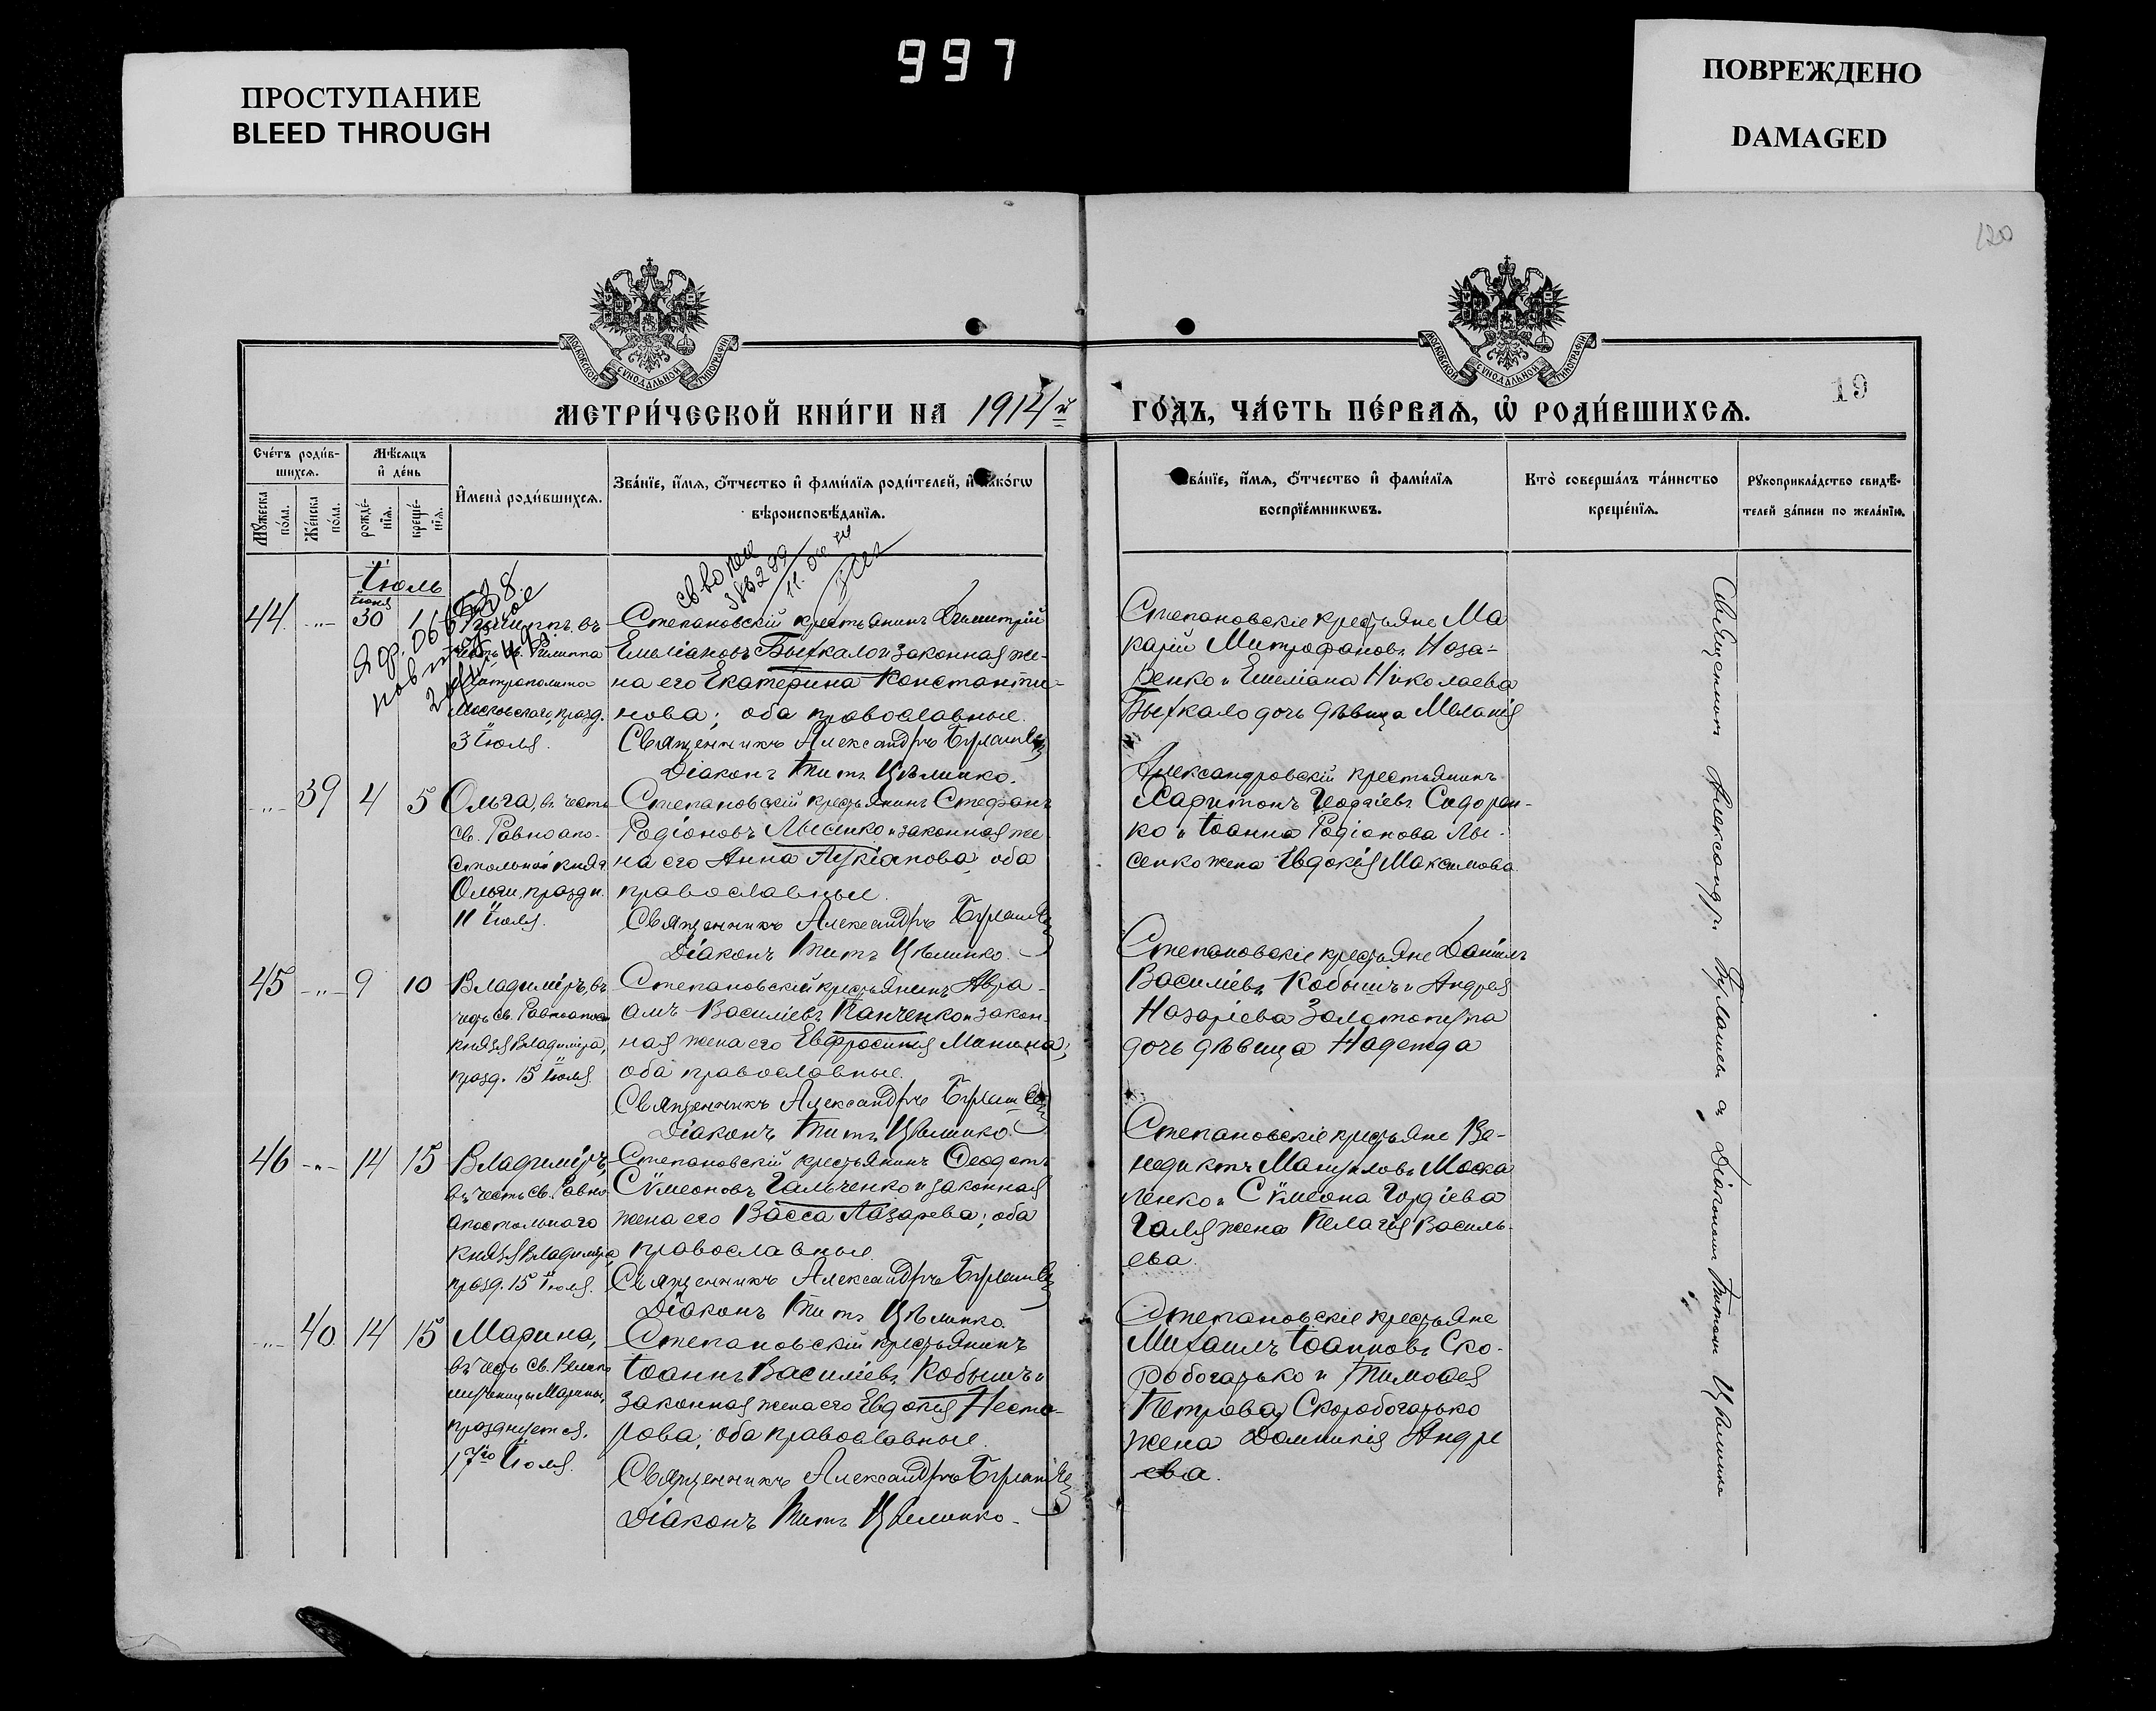 997
ПРОСТУПАНИЕ
BLEED THROUGH
ПОВРЕЖДЕНО
DAMAGED
120
МОСКОВСКОЙ СѴНОДАЛЬНОЙ ТИПОГРАФІИ
МОСКОВСКОЙ СѴНОДАЛЬНОЙ ТИПОГРАФІИ
19
МЕТРИ́ЧЕСКОЙ КНИ́ГИ НА 1914й
ГО́ДЪ, ЧА́СТЬ ПЕ́РВАѦ, Ѡ҆ РОДИ́ВШИХСѦ.
Сче́тъ роди́в-
шихсѧ.
Мꙋ́жеска по́ла.
Же́нска по́ла.
Мѣ́сѧцъ
и҆ де́нь
рожде́-
нїѧ.
креще́-
нїѧ.
И҆мена̀ роди́вшихсѧ.
Зва́нїе, и҆́мѧ, ѻ҆́тчество и҆ фами́лїѧ роди́телей, и҆ како́гѡ
вѣроисповѣ́данїѧ.
Зва́нїе, и҆́мѧ, ѻ҆́тчество и҆ фами́лїѧ
воспрїе́мникѡвъ.
Кто̀ соверша́лъ та́инство
креще́нїѧ.
Рꙋкоприкла́дство свидѣ́-
телей за́писи по жела́нїю.
Іюль
44 -„- Іюня 30 1
Филиппъ, въ
честь св. Филиппа
Митрополита
Московскаго, празд.
3 Іюля.
Степановскій крестьянинъ Димитрій
Емеліановъ Быхкало и законная же-
на его Екатерина Константи-
нова; оба православные.
Священникъ Александръ
Діаконъ Титъ Цѣлинко.
Степановскіе крестьяне Ма
карій Митрофановъ Наза-
ренко и Емеліана Николаева
Быхкало дочь дѣвица Меланія
-„- 39 4 5
Ольга, въ честь
св. Равноапо-
стольной княг.
Ольги, праздн.
11 Іюля.
Степановскій крестьянинъ Стефанъ
Родіоновъ Лысенко и законная же-
на его Анна Лукіанова; оба
православные.
Священникъ Александръ
Діаконъ Титъ Цѣлинко.
Александровскій крестьянинъ
Харитонъ Георгіевъ Сидорен-
ко и Іоанна Родіонова Лы-
сенко жена Евдокія Максимова.
45 -„- 9 10
Владиміръ, въ
честь св. Равноапост.
князя Владиміра,
празд. 15 Іюля.
Степановскій крестьянинъ Авра-
амъ Василіевъ Панченко и закон-
ная жена его Евфросинія Минина;
оба православные.
Священникъ Александръ
Діаконъ Титъ Цѣлинко.
Степановскіе крестьяне Даніилъ
Василіевъ Кобышъ и Андрея
Назаріева Золотопупа
дочь дѣвица Надежда
46 -„- 14 15
Владиміръ,
въ честь св. Равно-
апостольнаго
князя Владиміра,
празд. 15 Іюля.
Степановскій крестьянинъ Ѳеодотъ
Сѵмеоновъ Гальченко и законная
жена его Васса Лазарева; оба
православные.
Священникъ Александръ
Діаконъ Титъ Цѣлинко.
Степановскіе крестьяне Ве-
недиктъ Мануиловъ Моска
ленко и Сѵмеона Гордіева
Галя жена Пелагія Василь-
ева.
-„- 40 14 15
Марина,
въ честь св. Велико
мученицы Марины,
празднуется.
17го Іюля.
Степановскій крестьянинъ
Іоаннъ Василіевъ Кобышъ и
законная жена его Евдокія Несто-
рова; оба православные.
Священникъ Александръ
Діаконъ Титъ Цѣлинко.
Степановскіе крестьяне
Михаилъ Іоанновъ Ско-
робогатько и Тимоѳея
Петрова Скоробогатько
жена Домникія Андре
ева.
Священникъ Александръ съ Діакономъ Титомъ Цѣлинко